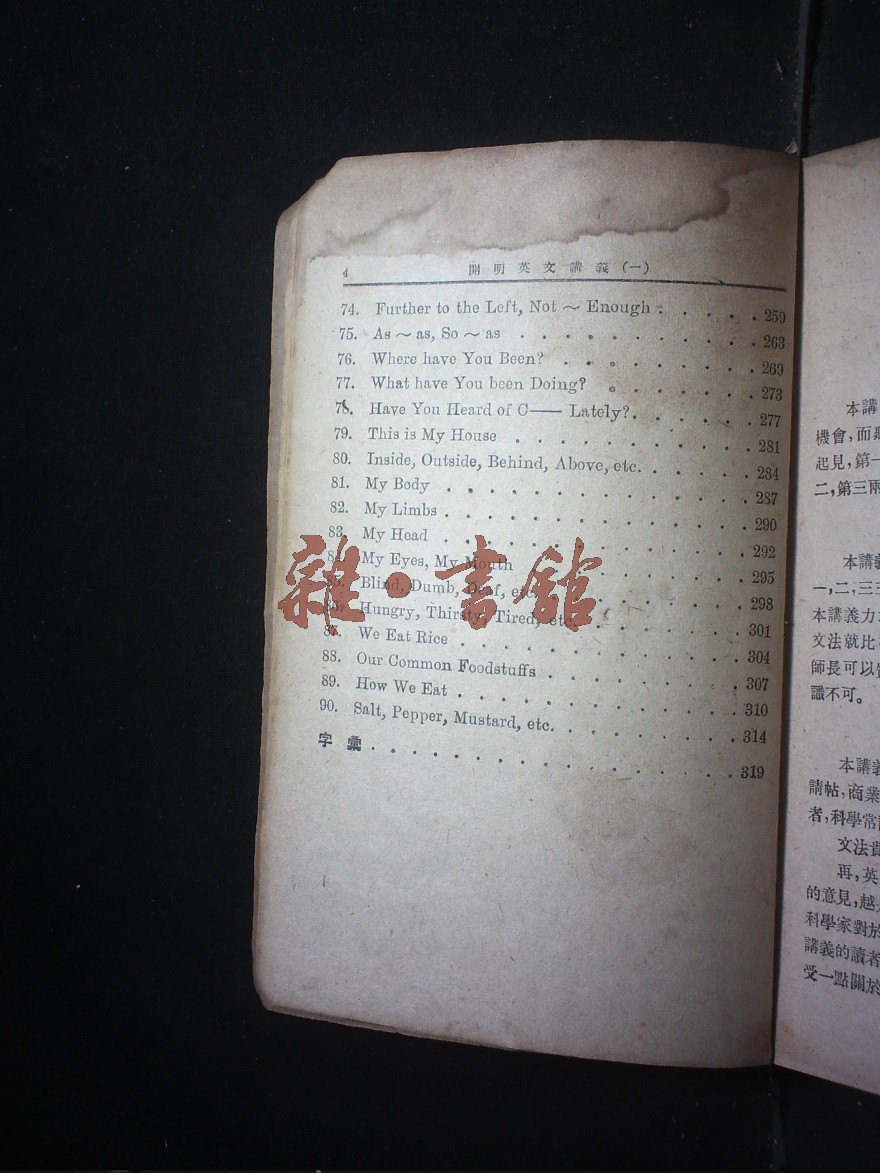 4 開明英文講義(一)
74. Further to the Left, Not ~ Enough . . . . . 259
75. As ~ as, So ~ as . . . . . . . . . . 263
76. Where have You Been? . . . . . . . . 269
77. What have You been Doing? . . . . . . 273
78. Have You Heard of C—— Lately? . . . . . 277
79. This is My House . . . . . . . . . . 281
80. Inside, Outside, Behind, Above, etc. . . . . . 284
81. My Body . . . . . . . . . . . . . 287
82. My Limbs . . . . . . . . . . . . . 290
83. My Head . . . . . . . . . . . . . 292
84. My Eyes, My Mouth . . . . . . . . . 295
85. Blind, Dumb, Deaf, etc. . . . . . . . . 298
86. Hungry, Thirsty, Tired, etc. . . . . . . . 301
87. We Eat Rice . . . . . . . . . . . . 304
88. Our Common Foodstuffs . . . . . . . . 307
89. How We Eat . . . . . . . . . . . . 310
90. Salt, Pepper, Mustard, etc. . . . . . . . 314
字彙 . . . . . . . . . . . . . . . . 319
雜·書館
本講
機會,而
起見,第一
二,第三兩
本講義
一,二,三
本講義力
文法就比
師長可以
識不可。
本講義
請帖,商業
者,科學常
文法貴
再,英
的意見,越
科學家對於
講義的讀者
受一點關於